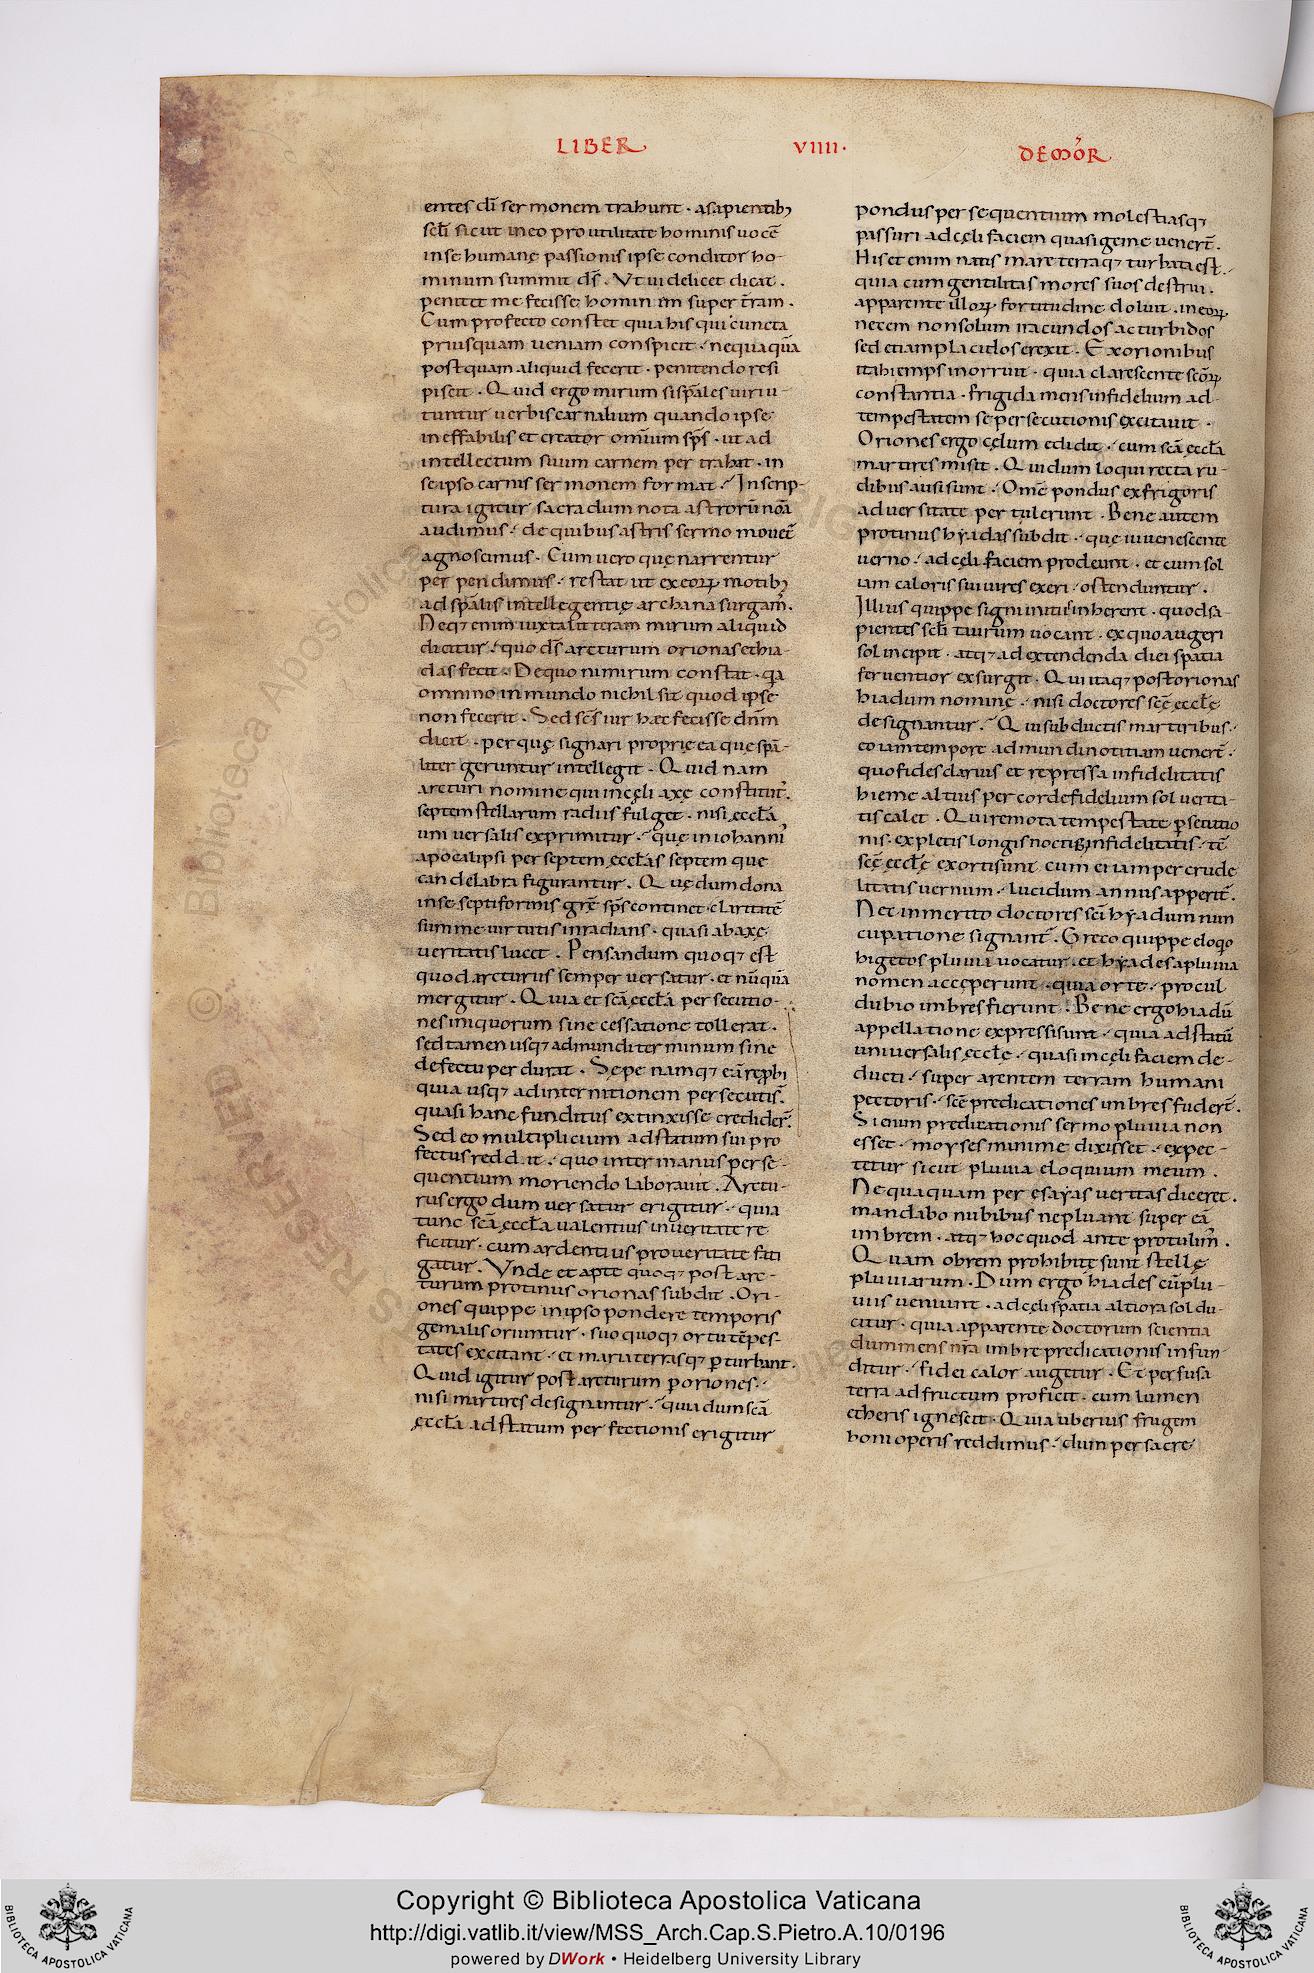 LIBER VIIII· DE MOR̄
entes dī sermonem trahunt · asapientib;
sc̄li sicut ineo pro utilitate hominis uocē
inse humane passionis ipse conditor ho-
minum summit ds̄ · Vt uidelicet dicat ·
penitet me fecisse hominem super t̄ram ·
Cum profecto constet quia his qui cuncta
priusquam ueniam conspicit · nequaquā
postquam aliquid fecerit · penitendo resi
piscit · Quid ergo mirum si sp̄ales uiri u-
tuntur uerbis carnalium quando ipse
ineffabilis et creator omīum sp̄s · ut ad
intellectum suum carnem per trahat · in
seipso carnis sermonem format · In scrip-
tura igitur sacra dum nota astrorū noīa
audimus · de quibus astris sermo mouet̄
agnoscimus · Cum uero quę narrentur
per pendimus · restat ut ex eorum motib;
ad sp̄alis intellegentię archana surgam̄ ·
Neq; enim iuxta litteram mirum aliquid
dicitur · quod ds̄ arcturum orionas ethia-
das fecit · De quo nimirum constat · qa
omnino in mundo nichil sit quod ipse
non fecerit · Sed sc̄s uir hęc fecisse dn̄m
dicit · per quę signari proprię ea que sp̄a-
liter geruntur intellegit · Quid nam
arcturi nomine qui incęli axe constitut̄ ·
septem stellarum radiis fulget · nisi ęccl̄a
uniuersalis exprimitur · quę in iohannis
apocalipsi per septem ęccl̄as septem que
candelabra figurantur · Quę dum dona
inse septiformis grē sp̄s continet · claritatē
summe uirtutis inradians · quasi abaxe
ueritatis lucet · Pensandum quoq; est
quod arcturus semper uersatur · et nūquā
mergitur · Quia et scā ęccl̄a persecutio-
nes iniquorum sine cessatione tollerat ·
sed tamen usq; ad mundi terminum sine
defectu per durat · Sępe namq; eā reprobi
quia usq; ad internitionem persecuti s̄ ·
quasi hanc funditus extinxisse credider̄ ·
Sed eo multiplicium ad statum sui pro
fectus rediit · quo inter manus perse-
quentium moriendo laborauit · Arctu-
rus ergo dum uersatur erigitur · quia
tunc scā ęccl̄a ualentius in ueritate re
ficitur · cum ardentius pro ueritate fati
gatur · Vnde et apte quoq; post arc-
turum protinus orionas subdit · Ori-
ones quippe in ipso pondere temporis
gemalis oriuntur · suo quoq; ortu tēpes-
tates excitant · et maria terrasq; pturbant ·
Quid igitur post arcturum p oriones ·
nisi martires designantur · quia dum scā
ęccl̄a ad statum perfectionis erigitur
pondus persequentium molestiasq;
passuri ad cęli faciem quasi geme uenert̄ ·
His et enim natis mare terraq; turbata est ·
quia cum gentilitas mores suos destrui ·
apparente illorum fortitudine doluit · in eorum
necem non solum iracundos ac turbidos
sed etiam placidos erexit · Ex orionibus
ita hiemps inorruit · quia clarescente sc̄orum
constantia · frigida mens infidelium ad
tempestatem se persecutionis excitauit ·
Oriones ergo cęlum edidit · cum scā ęccl̄a
martires misit · Qui dum loqui recta ru-
dibus ausi sunt · Omē pondus ex frigoris
aduersitate per tulerunt · Bene autem
protinus hẏadas subdit · quę iuuenescente
uerno · ad cęli faciem prodeunt · et cum sol
iam caloris sui uires exeri · ostenduntur ·
Illius quippe signi initiis inherent · quod sa-
pientes sc̄li taurum uocant · ex quo augeri
sol incipit · atq; ad extendenda diei spatia
feruentior exsurgit · Qui itaq; post orionas
hiadum nomine · nisi doctores scē ęccl̄e
designantur · Qui subductis martiribus ·
eo iam tempore ad mundi notitiam uenert̄ ·
quo fides clarius et repressa infidelitatis
hieme altius per corde fidelium sol uerita-
tis calet · Qui remota tempestate psecutio
nis · expletis longis noctib; infidelitatis · tē
scē ęccl̄ę exorti sunt cum ei iam per crude
litatis uernum · lucidum annus apperit̄ ·
Nec inmerito doctores sci hẏadum nun
cupatione signant̄ · Greco quippe eloqo
higetos pluuia uocatur · et hẏades a pluuia
nomen acceperunt · quia orte · procul
dubio imbres fierunt · Bene ergo hiadū
appellatione expressi sunt · quia ad statū
uniuersalis ęccl̄e · quasi in cęli faciem de-
ducti · super arentem terram humani
pectoris · scē predicationes imbres fudert̄ ·
Si enim predicationis sermo pluuia non
esset · moyses minime dixisset · expec-
tetur sicut pluuia eloquium meum ·
Nequaquam per esaẏas ueritas diceret ·
mandabo nubibus ne pluant super eā
imbrem · atq; hoc quod ante protulim̄ ·
Quam obrem prohibite sunt stellę
pluuiarum · Dum ergo hiades cū plu-
uiis ueniunt · ad cęli spatia altiora sol du-
citur · quia apparente doctorum scientia
dum mens nr̄a imbre predicationis infun-
ditur · fidei calor augetur · Et perfusa
terra ad fructum proficit · cum lumen
etheris ignescit · Quia uberius frugem
boni operis reddimus · dum per sacre
Copyright © Biblioteca Apostolica Vaticana
http://digi.vatlib.it/view/MSS_Arch.Cap.S.Pietro.A.10/0196
powered by DWork • Heidelberg University Library